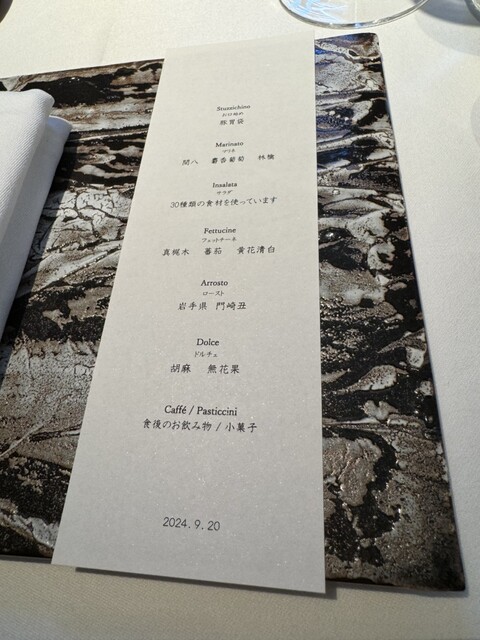 Stuzzichino
お口始め
豚胃袋
Marinato
マリネ
間八 麝香葡萄 林檎
Insalata
サラダ
30種類の食材を使っています
Fettucine
フェットチーネ
真梶木 蕃茄 黄花清白
Arrosto
ロースト
岩手県 門崎丑
Dolce
ドルチェ
胡麻 無花果
Caffé / Pasticcini
食後のお飲み物 / 小菓子
2024.9.20